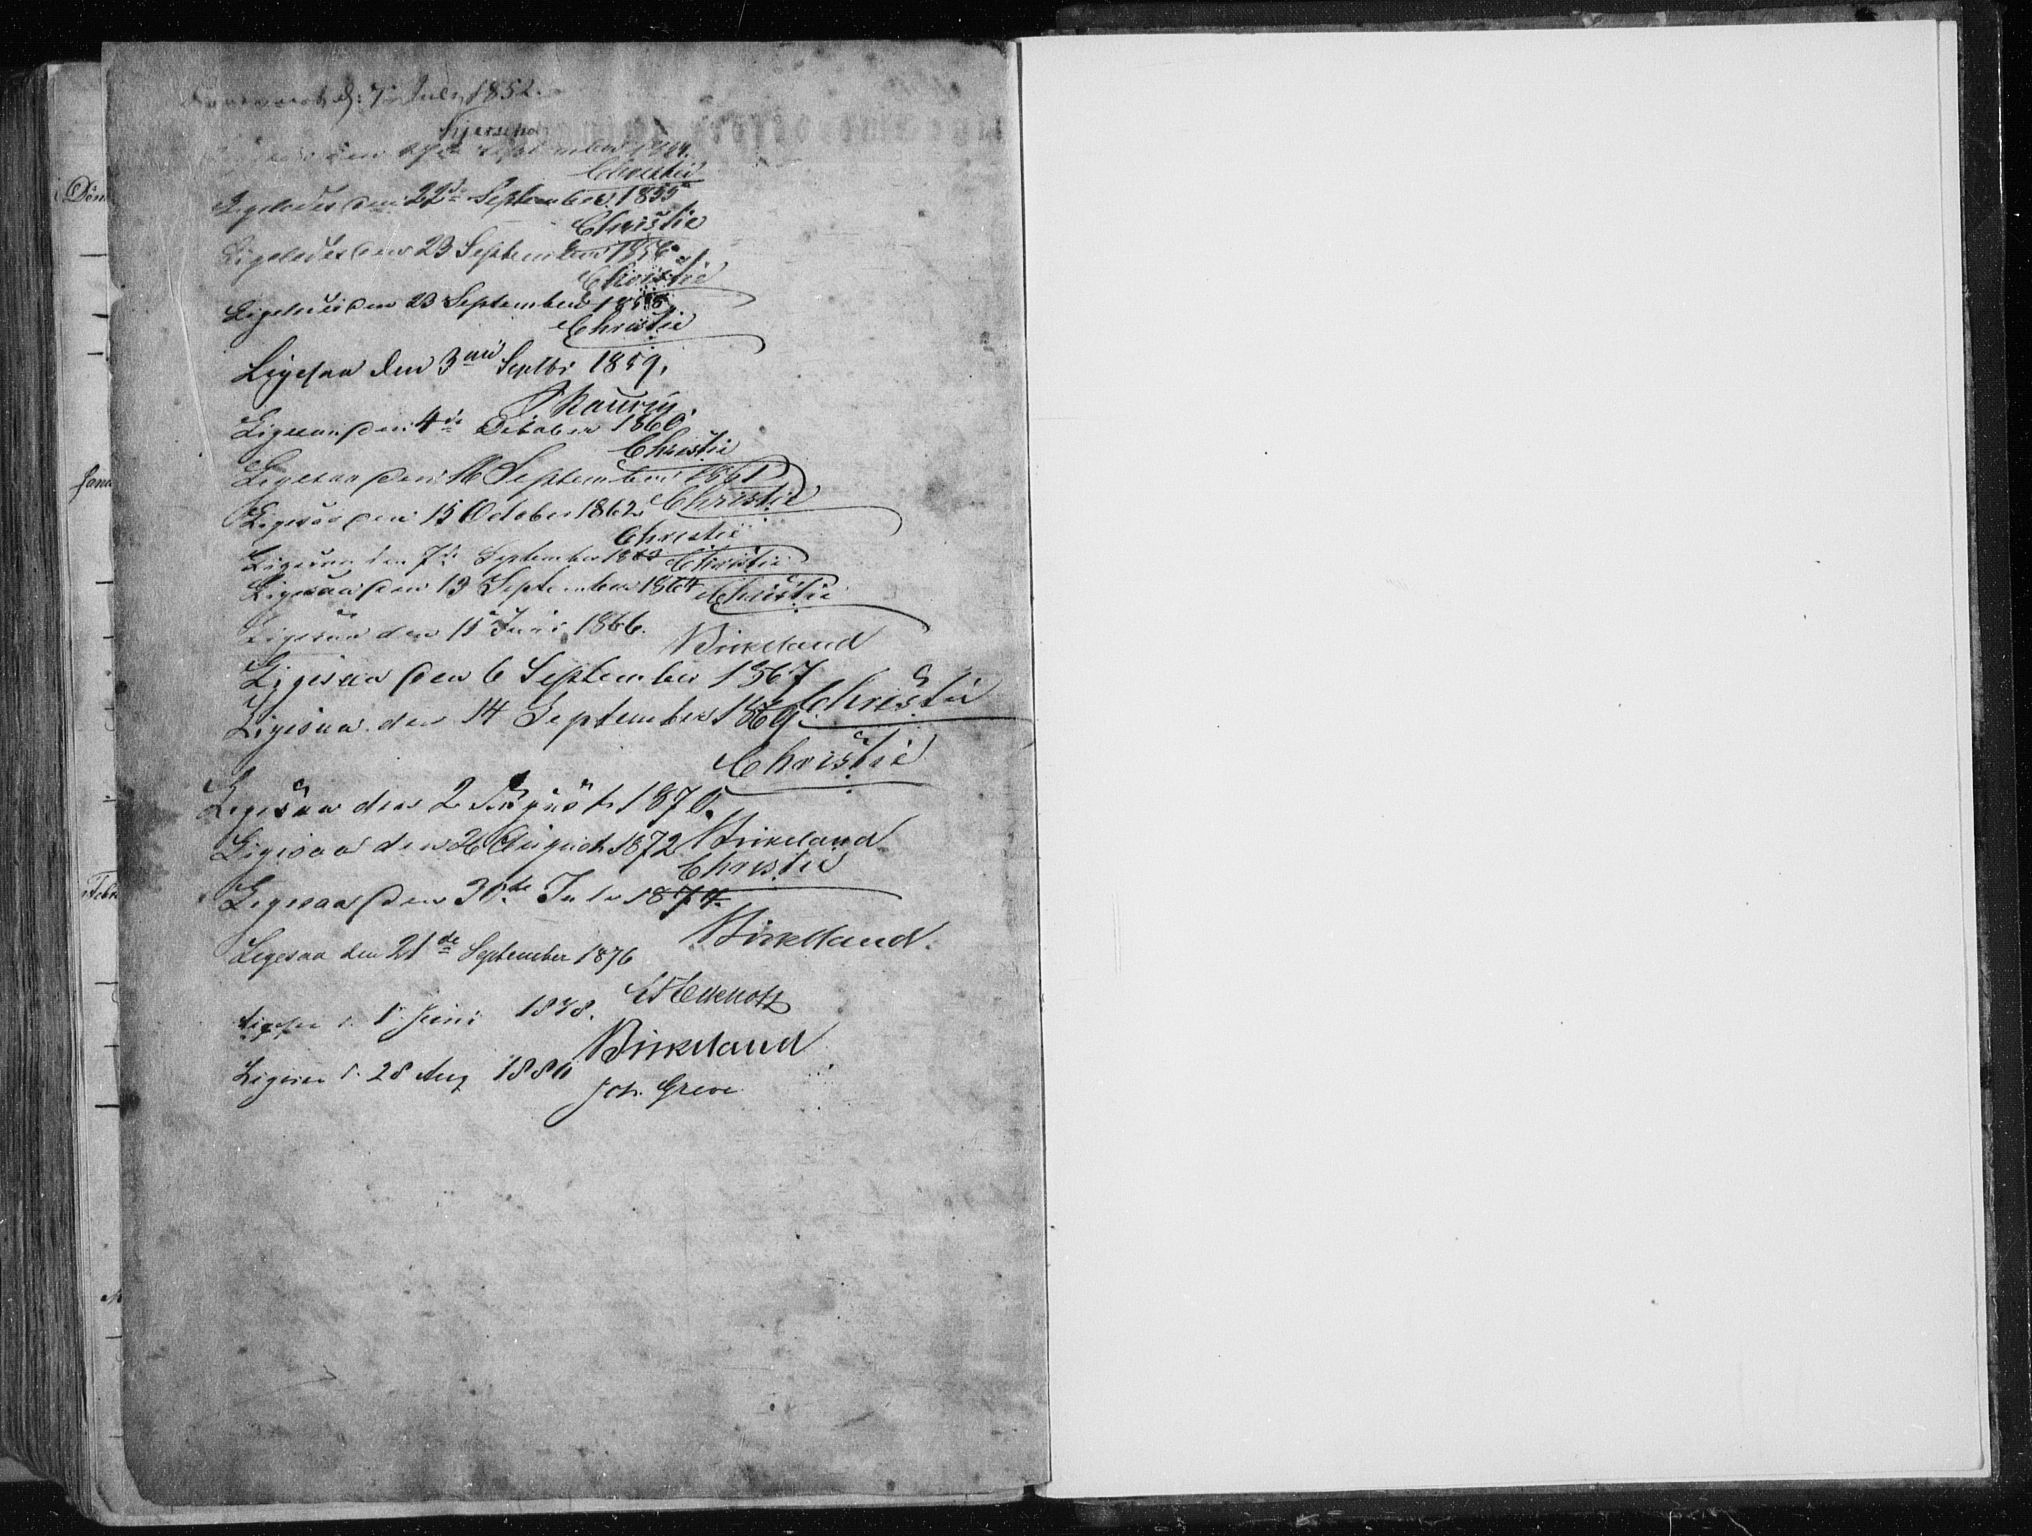 d: 7 July 1852.
Kjerschow
den September
Christie
Ligeledes den 22de September 1855
Christie
Ligeledes den 23 September 1856
Christie
Ligeledes den 23 September
Christie
Ligesaa den 3die Septbr 1859.
Maurin
Ligesaa den 4de October 1860
Christie
Ligesaa den 16 September 1861
Christie
Ligesaa den 15 October 1862
Christie
Ligesaa den 7de September 1863 Christie
Ligesaa den 13 September 1864 Christie
Ligesaa den 15 Juni 1866.
Birkeland
Ligesaa den 6 September 1867
Christie
Ligesaa den 14 September 1869.
Christie
Ligesaa den 2 August 1870.
Birkeland
Ligesaa den 26 August 1872
Christie
Ligesaa den 31de Juli 1874.
Birkeland.
Ligesaa den 21de September 1876
Ligesaa d. 1 Juni 1878.
Birkeland
Ligesaa d. 28 Aug 1880
Joh. Greve